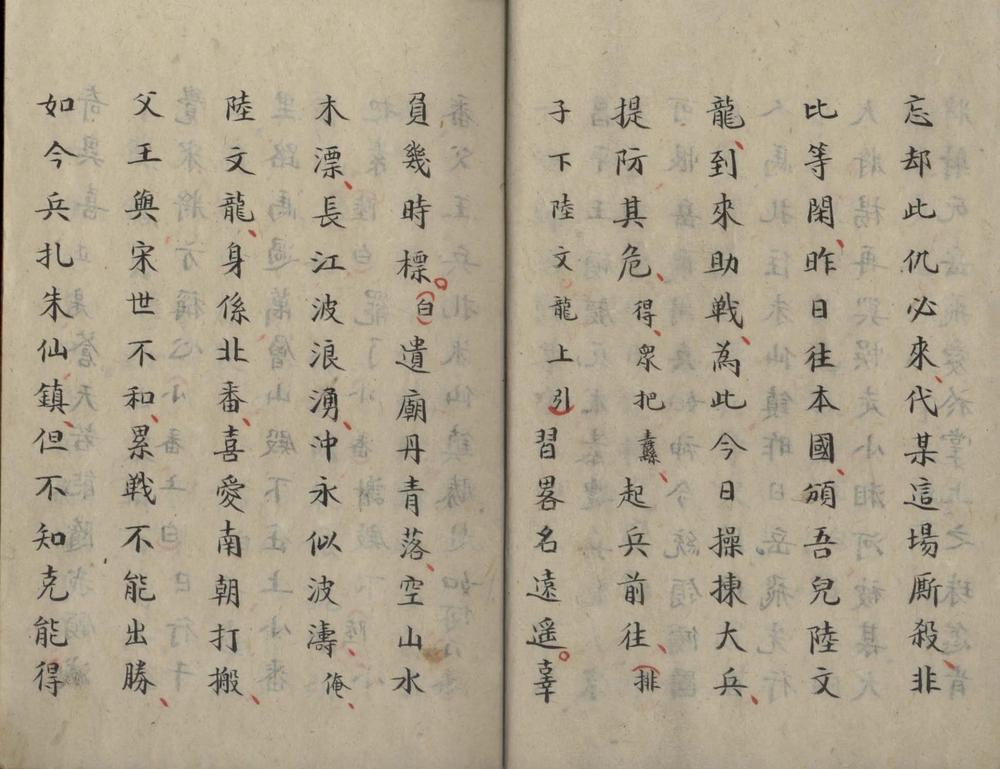 忘却此仇必來代某這場厮殺非
比等閑昨日往本國頒吾兒陸文
龍到來助戰為此今日操揀大兵
提防其危得眾把纛起兵前往(排
子下陸文龍上引)習畧名遠遥辜
負幾時標(白)遺廟丹青落空山水
木漂長江波浪湧沖永似波濤俺
陸文龍身係北番喜愛南朝打搬
父王與宋世不和累戰不能出勝
如今兵扎朱仙鎮但不知克能得